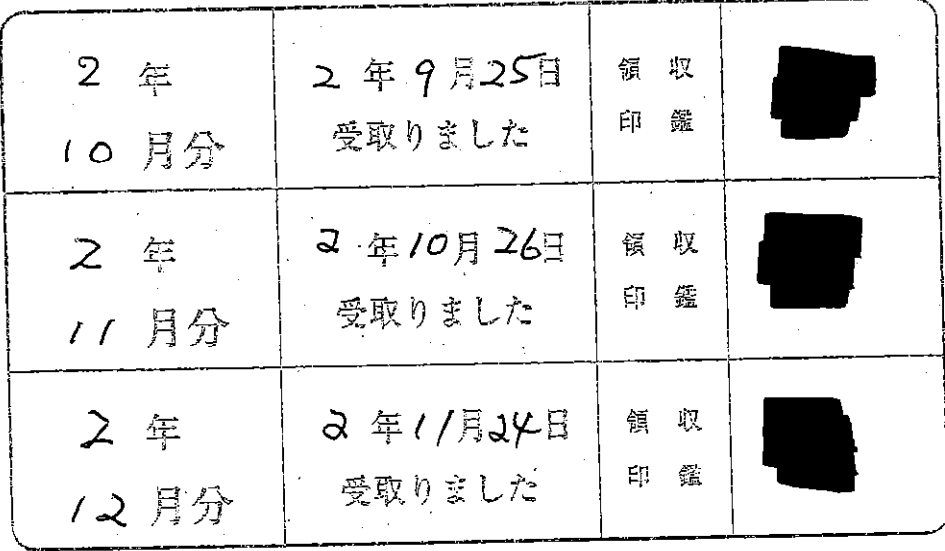 2 年
10 月分
2 年 9 月 25日
受取りました
領 収
印 鑑
2 年
11 月分
2 年 10月 26日
受取りました
領 収
印 鑑
2 年
12 月分
2 年 11月 24日
受取りました
領 収
印 鑑